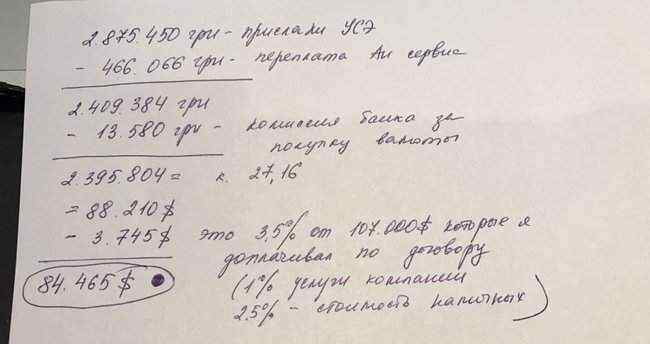 2.875.450 грн - прислали УСЭ
- 466.066 грн - переплата Аи сервис
2.409.384 грн
- 13.580 грн - комиссия банка за
покупку валюты
2.395.804 = к. 27,16
= 88.210 $
- 3.745 $ это 3,5% от 107.000$ которые я
доплачивал по договору
(1% услуги компании
2.5% - стоимость наличных)
84.465 $